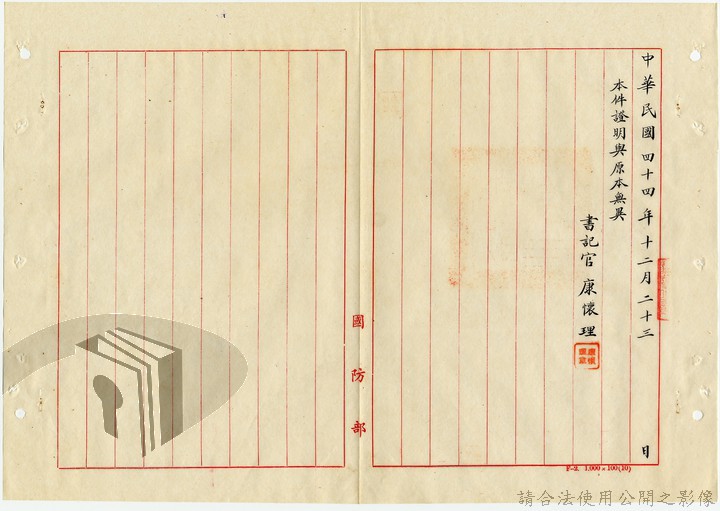 中華民國四十四年十二月二十三日
本件證明與原本無異
書記官 康懷理
國防部
F-2. 1,000×100(10)
請合法使用公開之影像